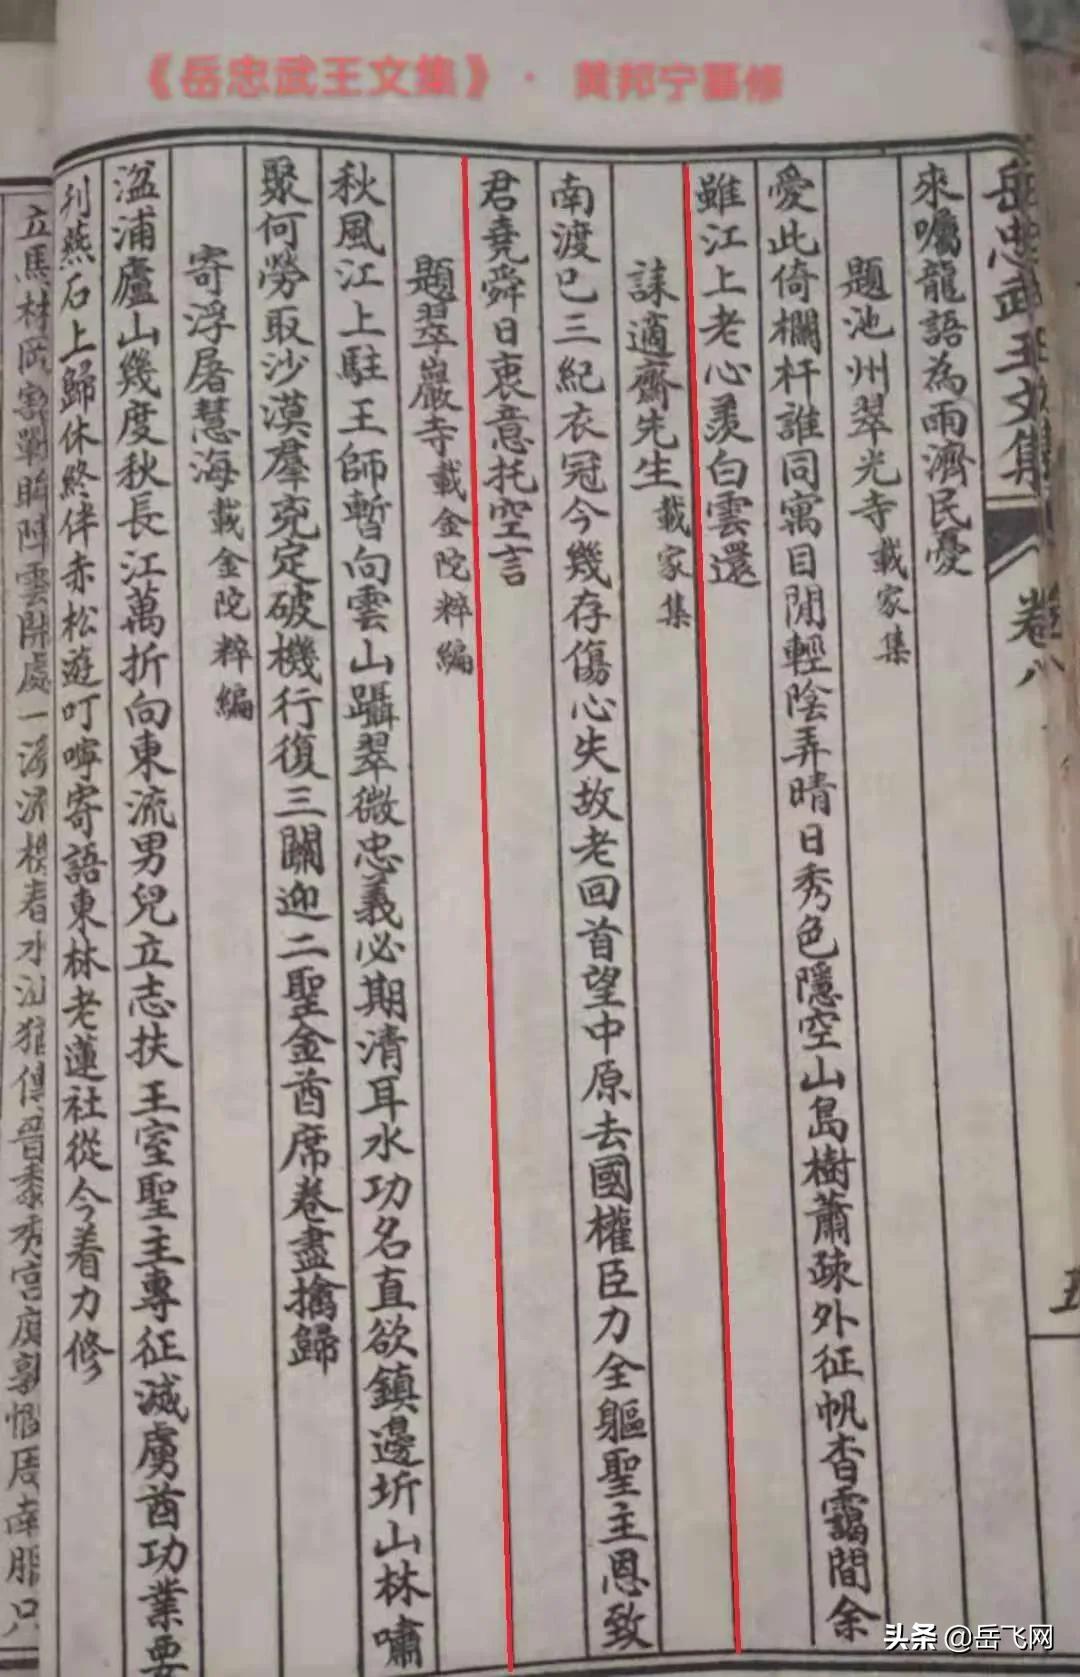 《岳忠武王文集》· 黄邦宁纂修
岳忠武王文集 卷八
來囑龍語為雨濟民憂
題池州翠光寺 載家集
愛此倚欄杆誰同寓目閒輕陰弄晴日秀色隱空山島樹蕭疎外征帆杳靄間余
雖江上老心羨白雲還
誄適齋先生 載家集
南渡已三紀衣冠今幾存傷心失故老回首望中原去國權臣力全軀聖主恩致
君堯舜日衷意托空言
題翠巖寺 載金陀粹編
秋風江上駐王師暫向雲山躡翠微忠義必期清耳水功名直欲鎮邊圻山林嘯
聚何勞取沙漠羣兇定破機行復三關迎二聖金酋席卷盡擒歸
寄浮屠慧海 載金陀粹編
湓浦廬山幾度秋長江萬折向東流男兒立志扶王室聖主專征滅虜酋功業要
刋燕石上歸休終伴赤松遊叮嚀寄語東林老蓮社從今着力修
立馬林岡豁戰眸陣雲開處一溪流機舂水沚猶傳晉黍秀宮庭孰憫周南服只
头条 @岳飞网